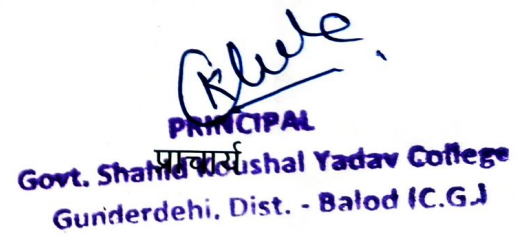 PRINCIPAL
प्राचार्य
Govt. Shahid Koushal Yadav College
Gunderdehi, Dist. - Balod (C.G.)